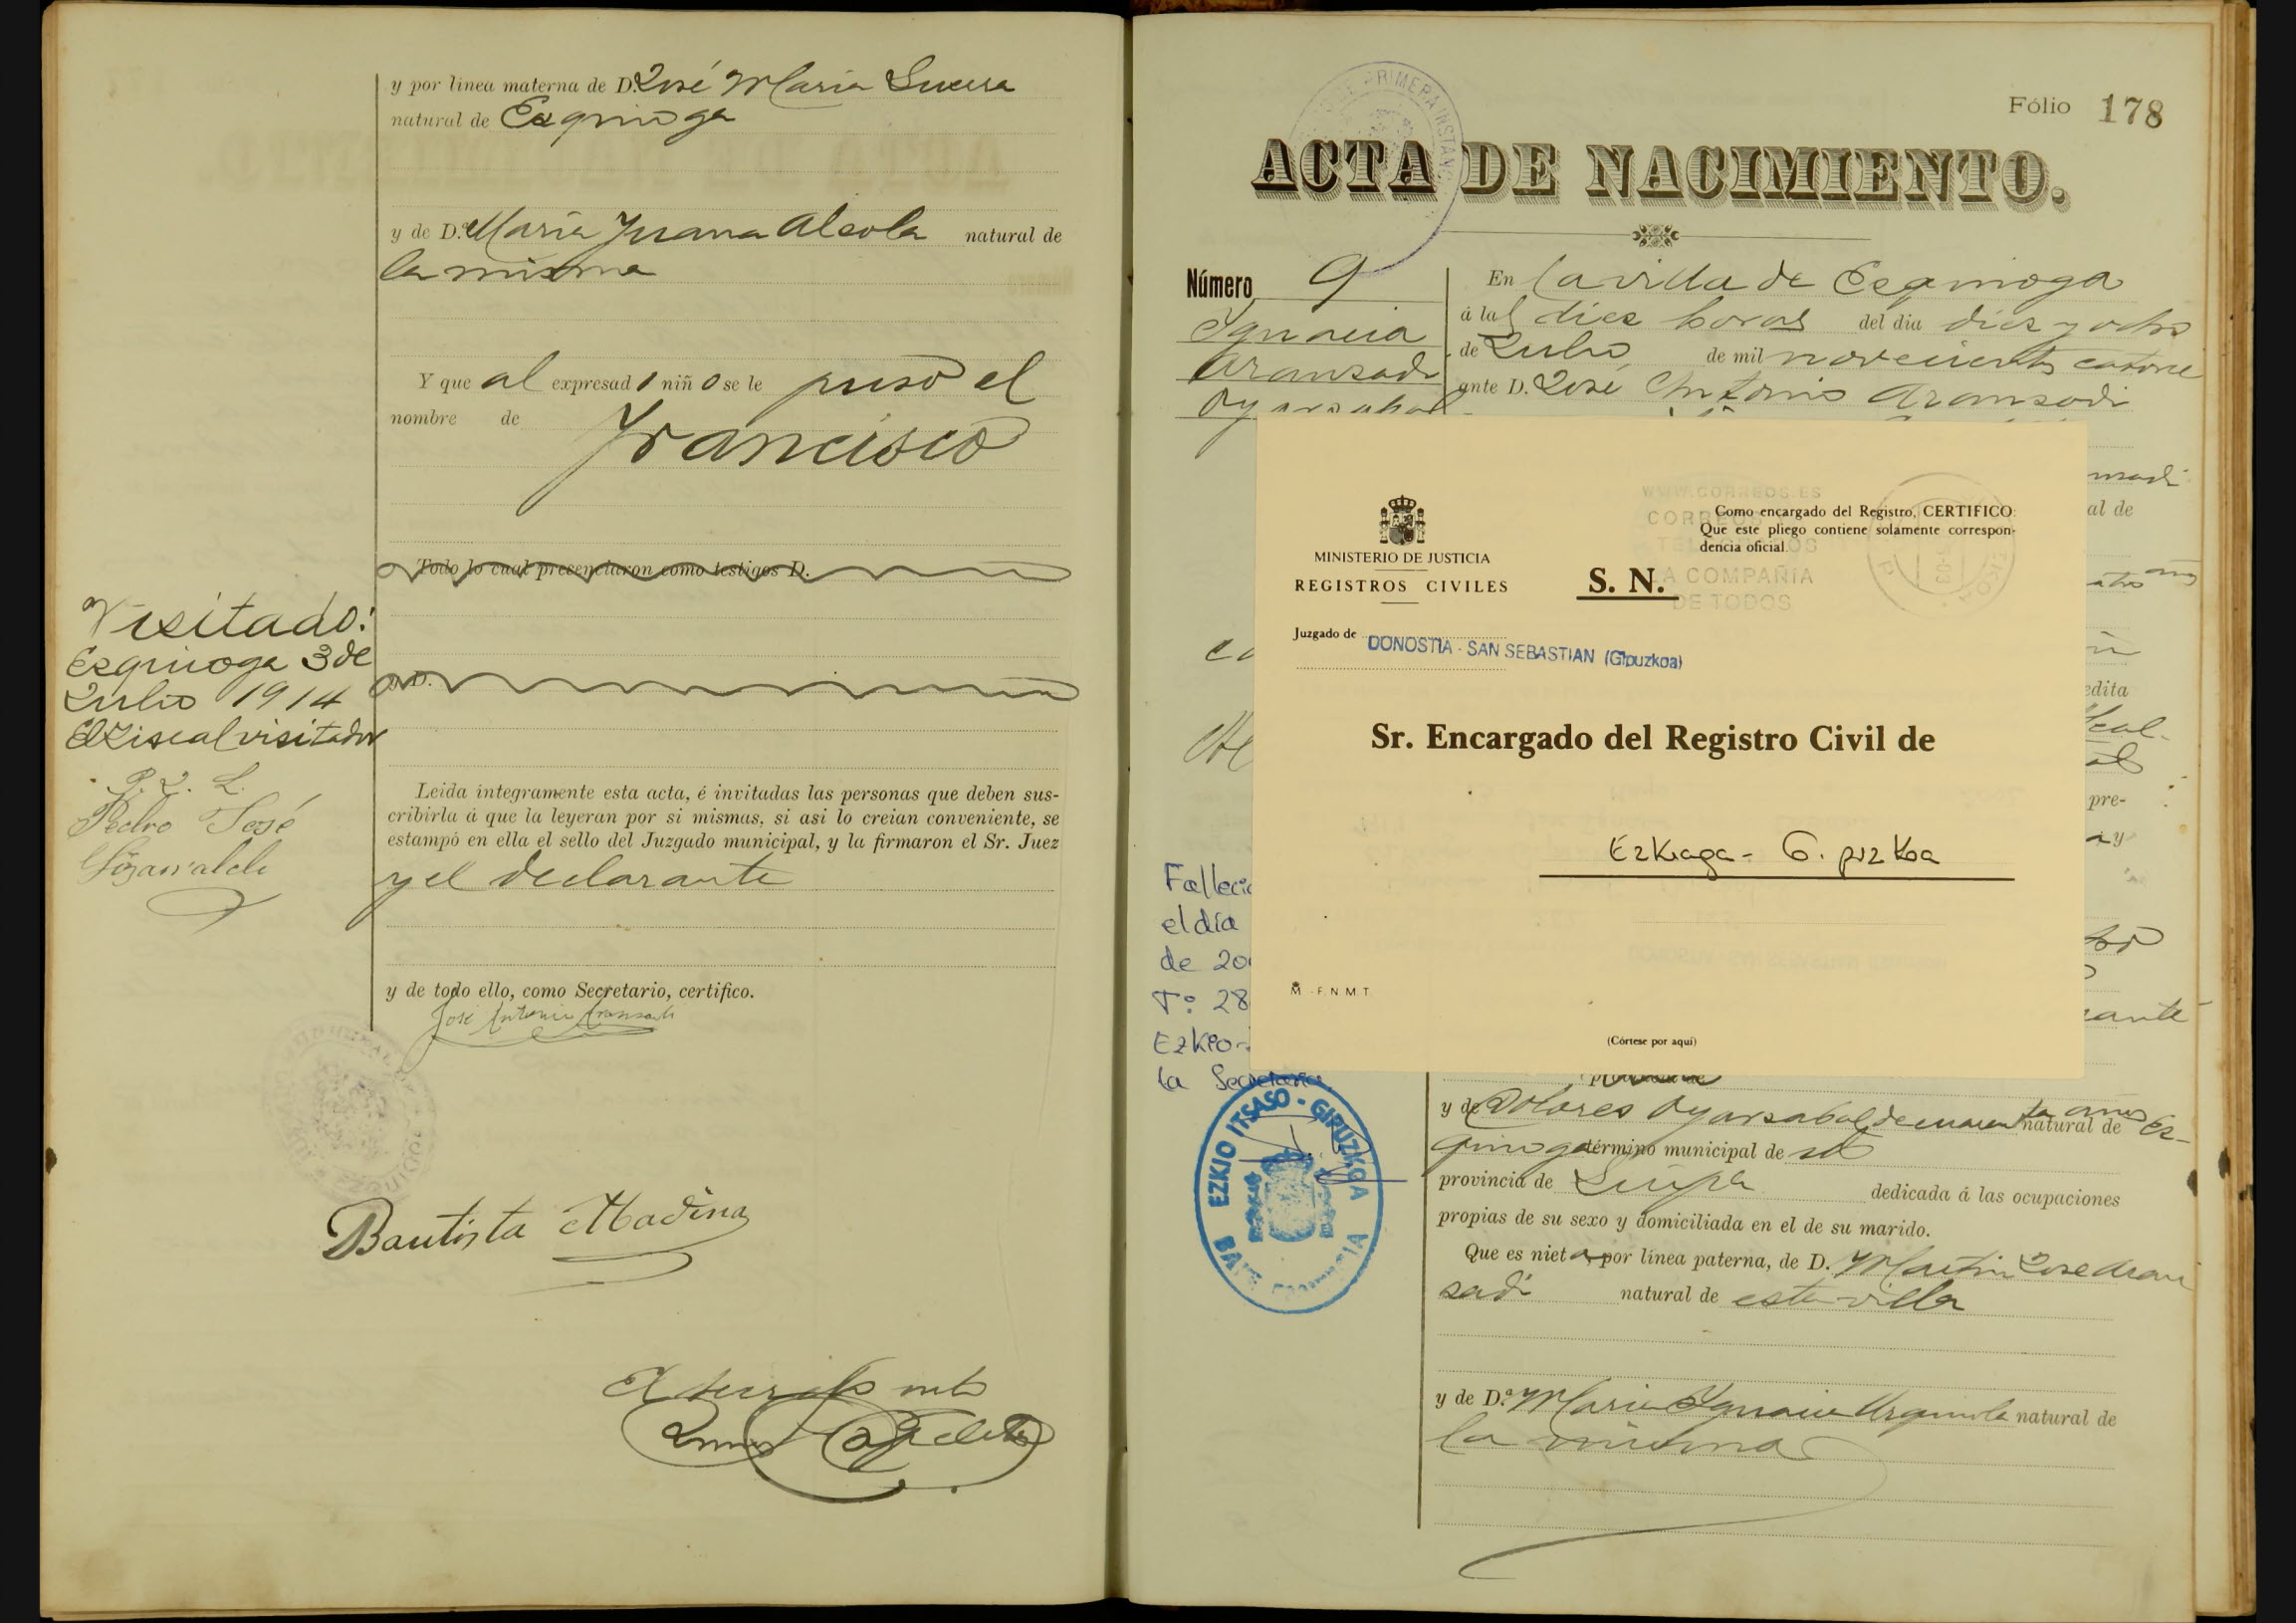 y por linea materna de D. José Maria
natural de Ezquioga
y de D.ª Maria Juana Alcola natural de
la misma
Y que al expresado niño se le puso el
nombre de
Francisco
Todo lo cual presenciaron como testigos D.
y D.
Visitado:
Ezquioga 3 de
Julio 1914
El Fiscal visitador
P. I. L.
Pedro José
Leida integramente esta acta, é invitadas las personas que deben sus-
cribirla á que la leyeran por si mismas, si asi lo creian conveniente, se
estampó en ella el sello del Juzgado municipal, y la firmaron el Sr. Juez
y el declarante
y de todo ello, como Secretario, certifico.
José Antonio Aransadi
Bautista Madina
Fólio 178
ACTA DE NACIMIENTO.
Número 9
Ygnacia
Aransadi
Oyarzabal
En la villa de Ezquioga
á las diez horas del dia diez y ocho
de Julio de mil novecientos catorce
ante D. José Antonio Aransadi
nsadi
al de
MINISTERIO DE JUSTICIA
REGISTROS CIVILES
S. N.
WWW.CORREOS.ES
CORREOS
LA COMPAÑIA
DE TODOS
Como encargado del Registro, CERTIFICO:
Que este pliego contiene solamente correspon-
dencia oficial.
Juzgado de DONOSTIA - SAN SEBASTIAN (Gipuzkoa)
Sr. Encargado del Registro Civil de
Ezkioga - G.puzkoa
F.N.M.T.
(Córtese por aquí)
edita
pre-
a y
ante
Falleció
el día
de 20
Tº 28
Ezkio-
la Secretaria
EZKIO ITSASO - GIPUZKOA
y de Dolores Oyarsabal de cuarenta años natural de Ez-
quioga término municipal de id
provincia de Guipª dedicada á las ocupaciones
propias de su sexo y domiciliada en el de su marido.
Que es nieta por línea paterna, de D. Martin José Aran
sadi natural de esta villa
y de D.ª Maria Ygnacia Urquiola natural de
la misma